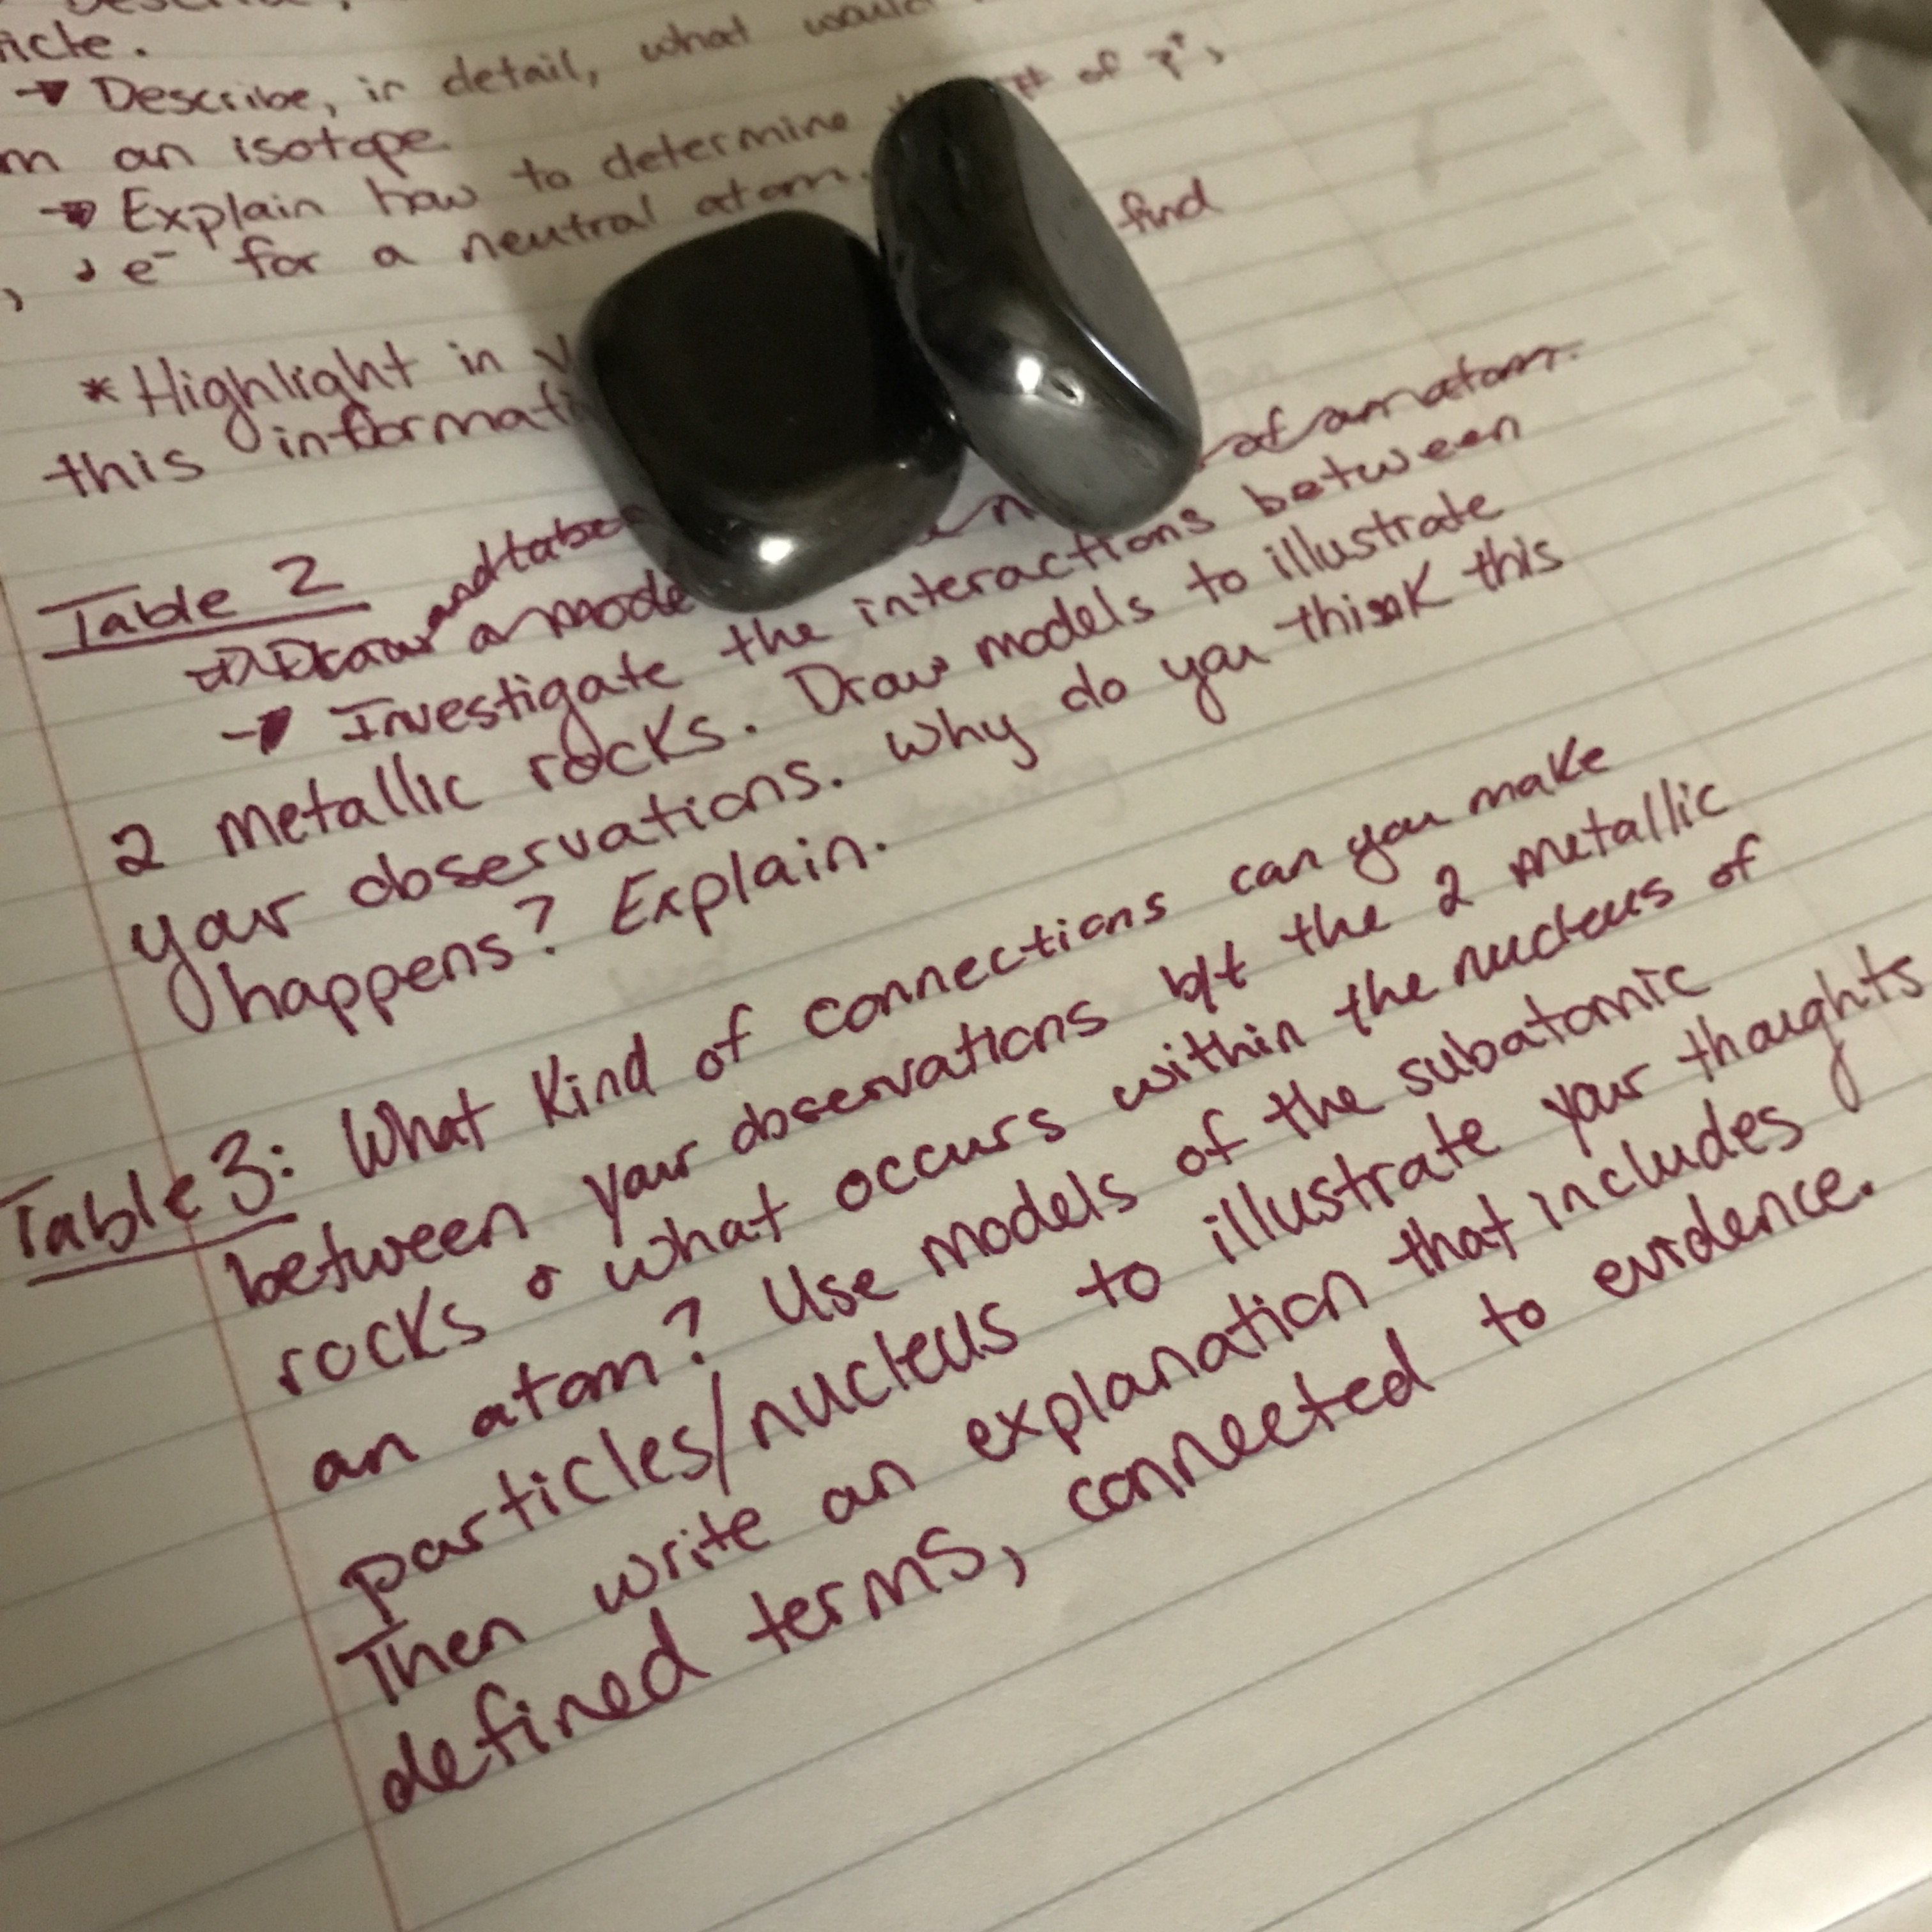 icle.
→ Describe, in detail, what would
m an isotope.
→ Explain how to determine # of p⁺,
, & e⁻ for a neutral atom. find
* Highlight in
this informati
Table 2
→ Draw and label a mode of an atom.
→ Investigate the interactions between
2 metallic rocks. Draw models to illustrate
your observations. Why do you think this
happens? Explain.
Table 3: What kind of connections can you make
between your observations b/t the 2 metallic
rocks & what occurs within the nucleus of
an atom? Use models of the subatomic
particles/nucleus to illustrate your thoughts
Then write an explanation that includes
defined terms, connected to evidence.